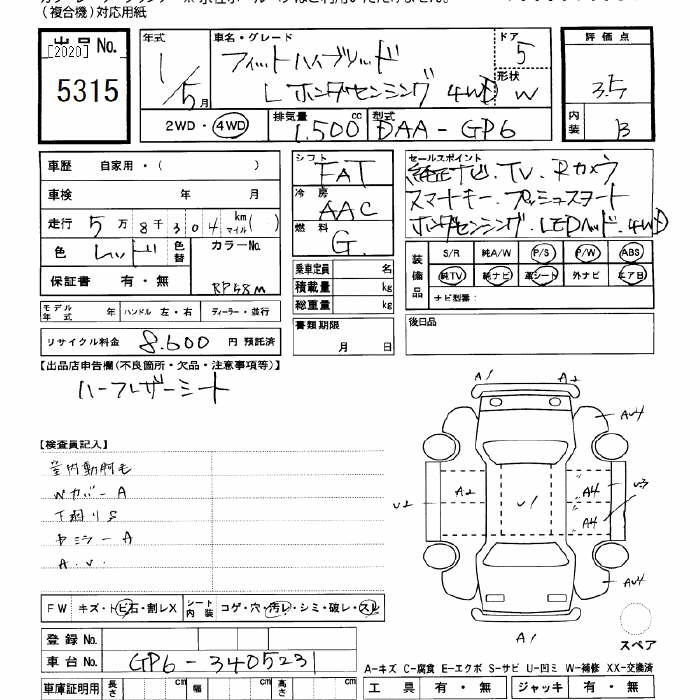 (複合機)対応用紙
出品No.
[2020]
5315
年式 1/5月
車名・グレード フィットハイブリッド
L ホンダセンシング 4WD
ドア 5
形状 W
2WD・4WD
排気量 1.500cc
型式 DAA-GP6
評価点 3.5
内装 B
車歴 自家用・( )
車検 年 月
走行 5万8千304km マイル( )
色 レッド 色替
カラーNo. RP58M
保証書 有・無
モデル年式 年 ハンドル 左・右 ディーラー・並行
リサイクル料金 8.600 円 預託済
シフト FAT
冷房 AAC
燃料 G.
乗車定員 名
積載量 kg
総重量 kg
書類期限
月 日
セールスポイント
純正ナビ.TV.Rカメラ
スマートキー.プッシュスタート
ホンダセンシング.LEDヘッド.4WD
装備品
S/R 純A/W P/S P/W ABS
純TV 純ナビ 革シート 外ナビ エアB
ナビ型番:
後日品
【出品店申告欄(不良箇所・欠品・注意事項等)】
ハーフレザーシート
【検査員記入】
室内動物毛
Wカバー A
下廻りS
ヤミラー A
A.U.
A1 A2
AU4
U2 A2 U1 A4 U3
A4
AU4
A1
スペア
FW キズ・トビ石・割レX
シート内装 コゲ・穴・汚レ・シミ・破レ・スレ
登録No.
車台No. GP6-3405231
車庫証明用 長さ cm 幅 cm 高さ cm
A-キズ C-腐食 E-エクボ S-サビ U-凹ミ W-補修 XX-交換済
工具 有・無 ジャッキ 有・無